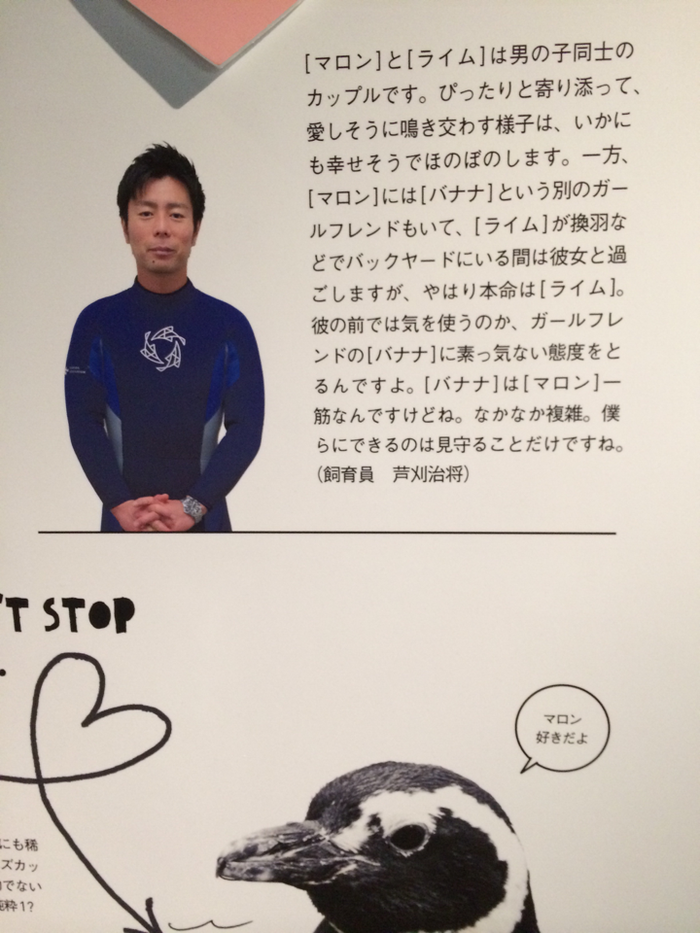 [マロン]と[ライム]は男の子同士の
カップルです。ぴったりと寄り添って、
愛しそうに鳴き交わす様子は、いかに
も幸せそうでほのぼのします。一方、
[マロン]には[バナナ]という別のガー
ルフレンドもいて、[ライム]が換羽な
どでバックヤードにいる間は彼女と過
ごしますが、やはり本命は[ライム]。
彼の前では気を使うのか、ガールフレ
ンドの[バナナ]に素っ気ない態度をと
るんですよ。[バナナ]は[マロン]一
筋なんですけどね。なかなか複雑。僕
らにできるのは見守ることだけですね。
(飼育員　芦刈治将)
'T STOP
マロン
好きだよ
にも稀
ズカッ
でない
純粋1?